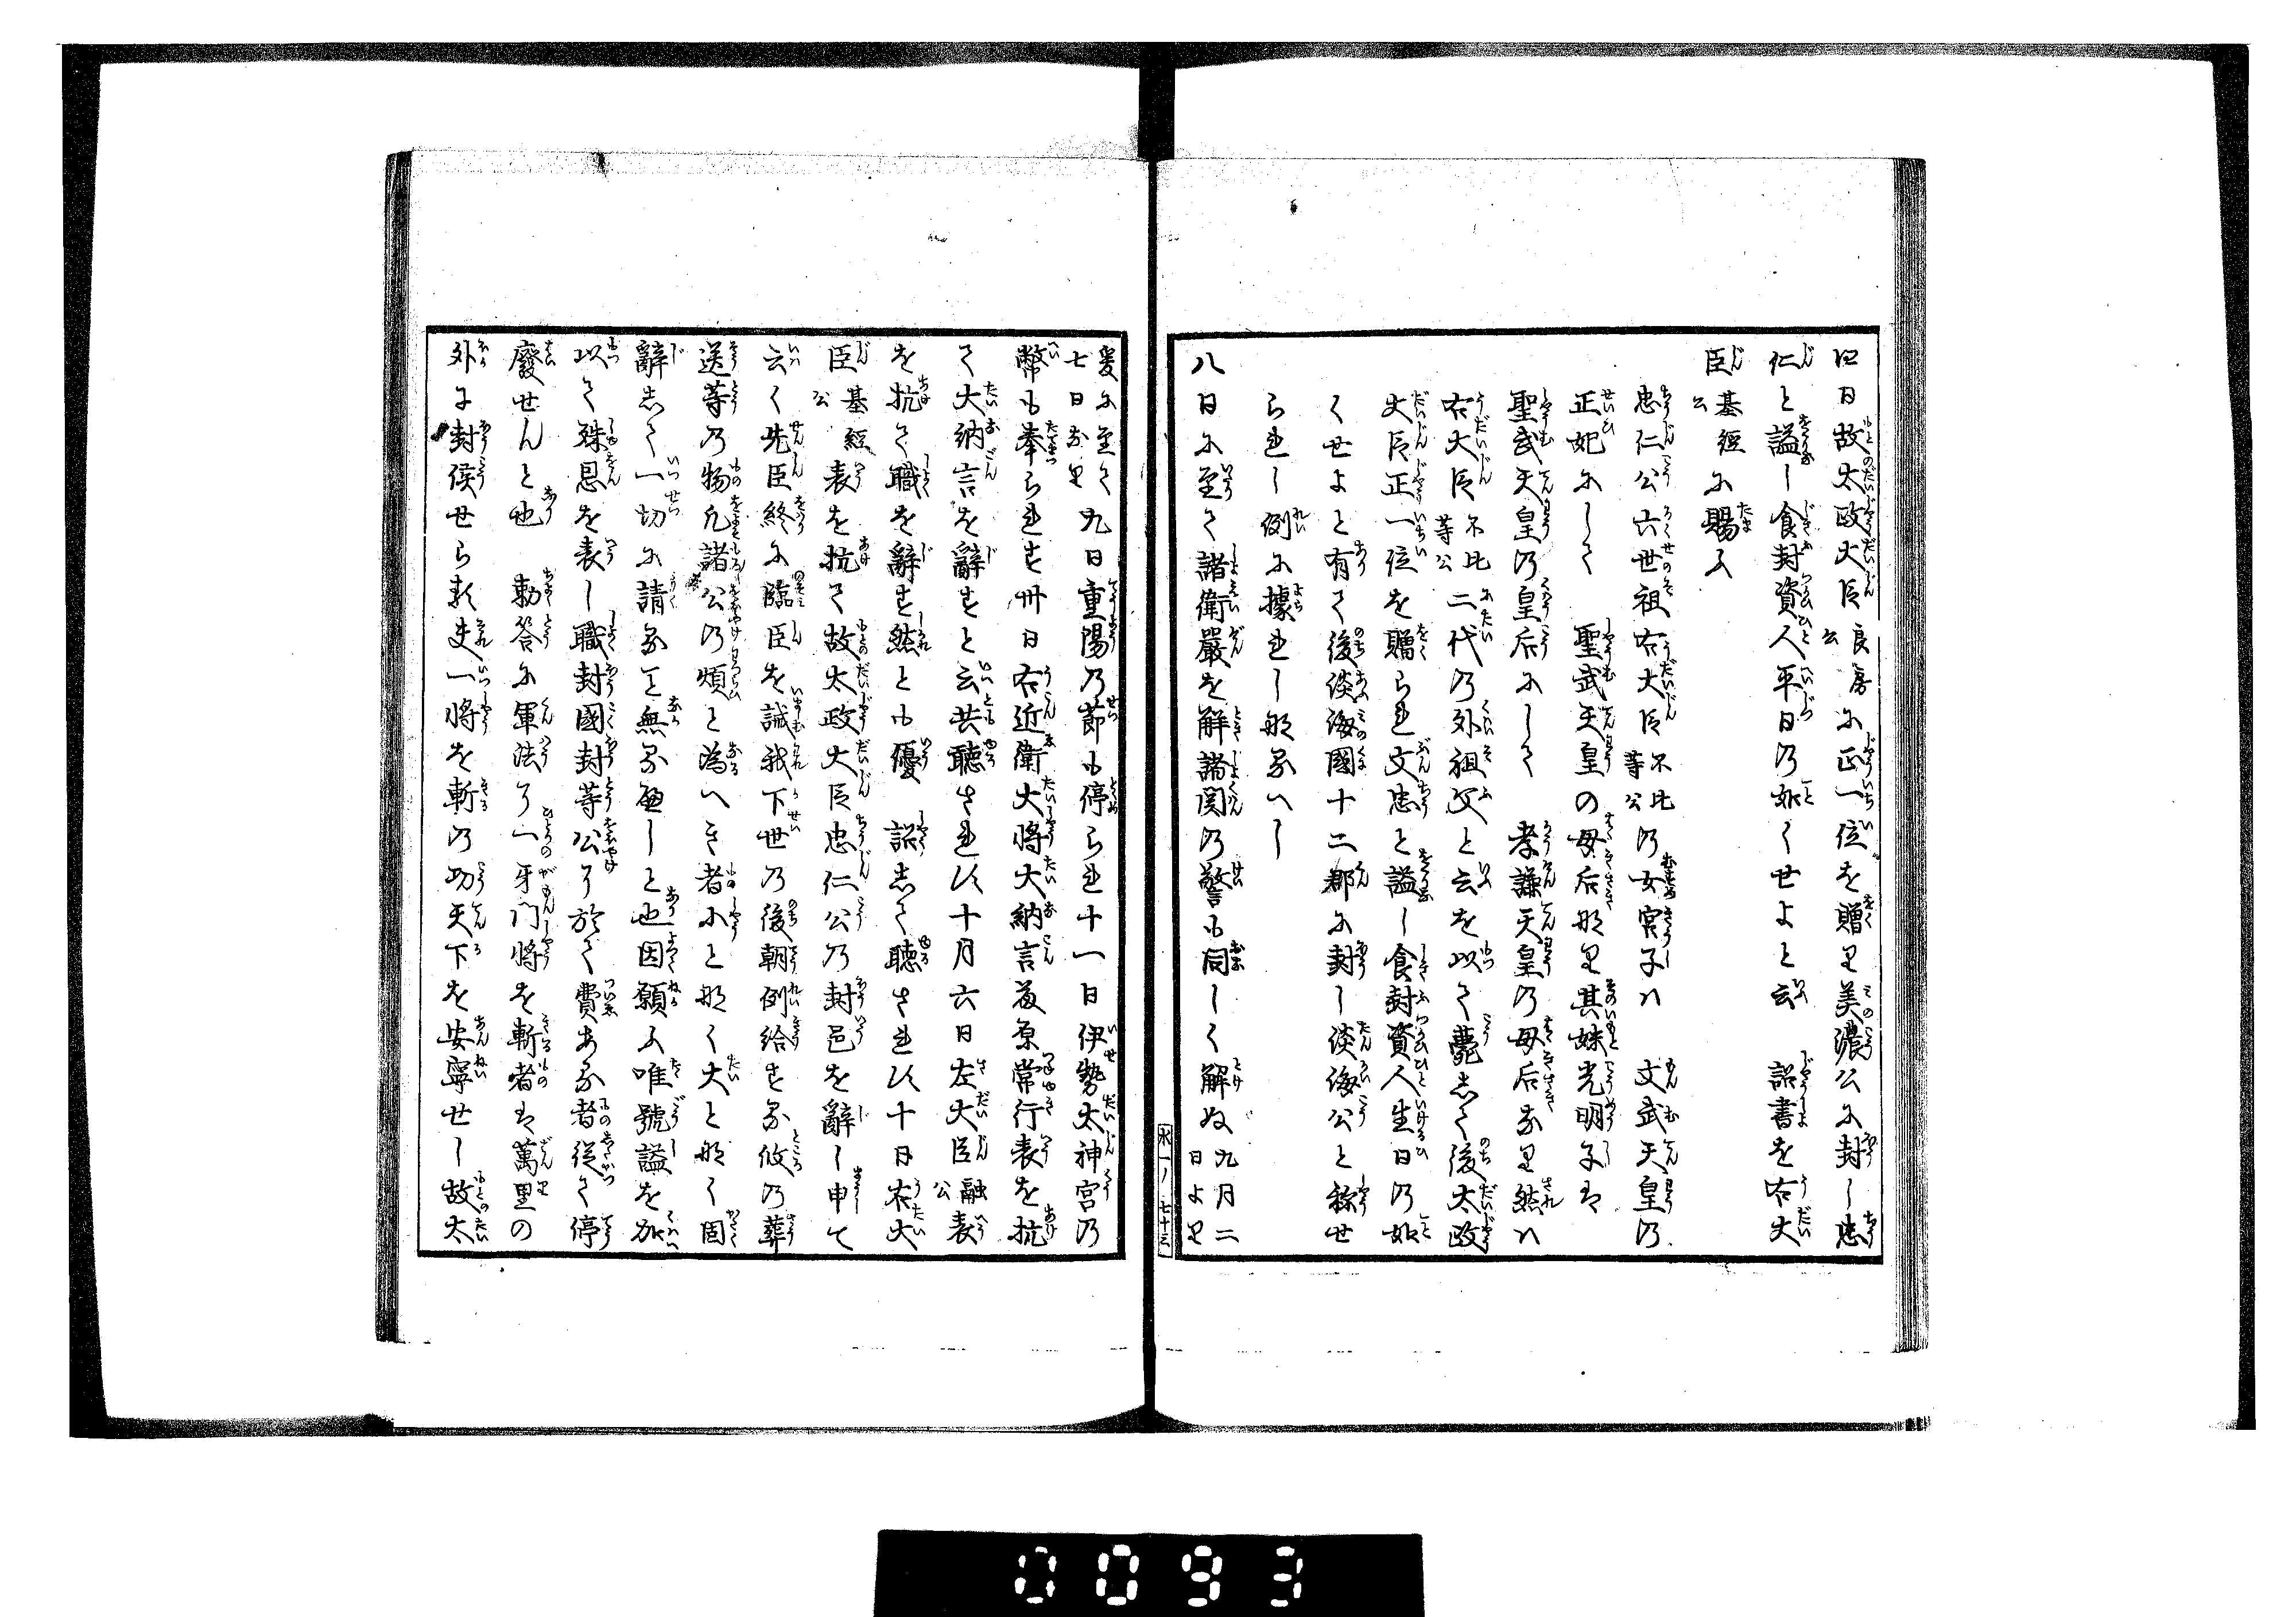 四日故太政大臣良房公に正一位を贈り美濃公に封し忠
仁と謚し食封資人平日の如くせよと云　詔書を右大
臣基経公に賜ふ
忠仁公六世祖右大臣不比等公の女宮子ハ　文武天皇の
正妃にして　聖武天皇の母后那り其妹光明子は
聖武天皇の皇后にして　孝謙天皇の母后なり然ハ
右大臣不比等公二代の外祖父と云を以て薨して後太政
大臣正一位を贈られ文忠と謚し食封資人生日の如
くせよと有て後淡海國十二郡に封し淡海公と称せ
られし例に據れし那るへし
八日に至て諸衛嚴を解諸関の警も同しく解ぬ九月二日より
爰に至て七日なり九日重陽の節も停られ十一日伊勢太神宮の
幣も奉られす卅日右近衛大将大納言藤原常行表を抗
て大納言を辭すと云共聴されす十月六日左大臣融公表
を抗て職を辭す然とも優　詔して聴されす十日右大
臣基経公表を抗て故太政大臣忠仁公の封邑を辭し申て
云く先臣終に臨臣を誡我下世の後朝例給する攸の葬
送等の物凡諸公の煩と為へき者小と那く大と那く固
辭して一切に請る𪜈無る遍しと也因願ふ唯號謚を加
以て殊恩を表し職封國封等公り於て費ある者従て停
廢せんと也　勅答に軍法り一牙門将を斬者は萬里の
外に封侯せらる夫一将を斬の功天下を安寧せし故太
永一ノ七十三
0093